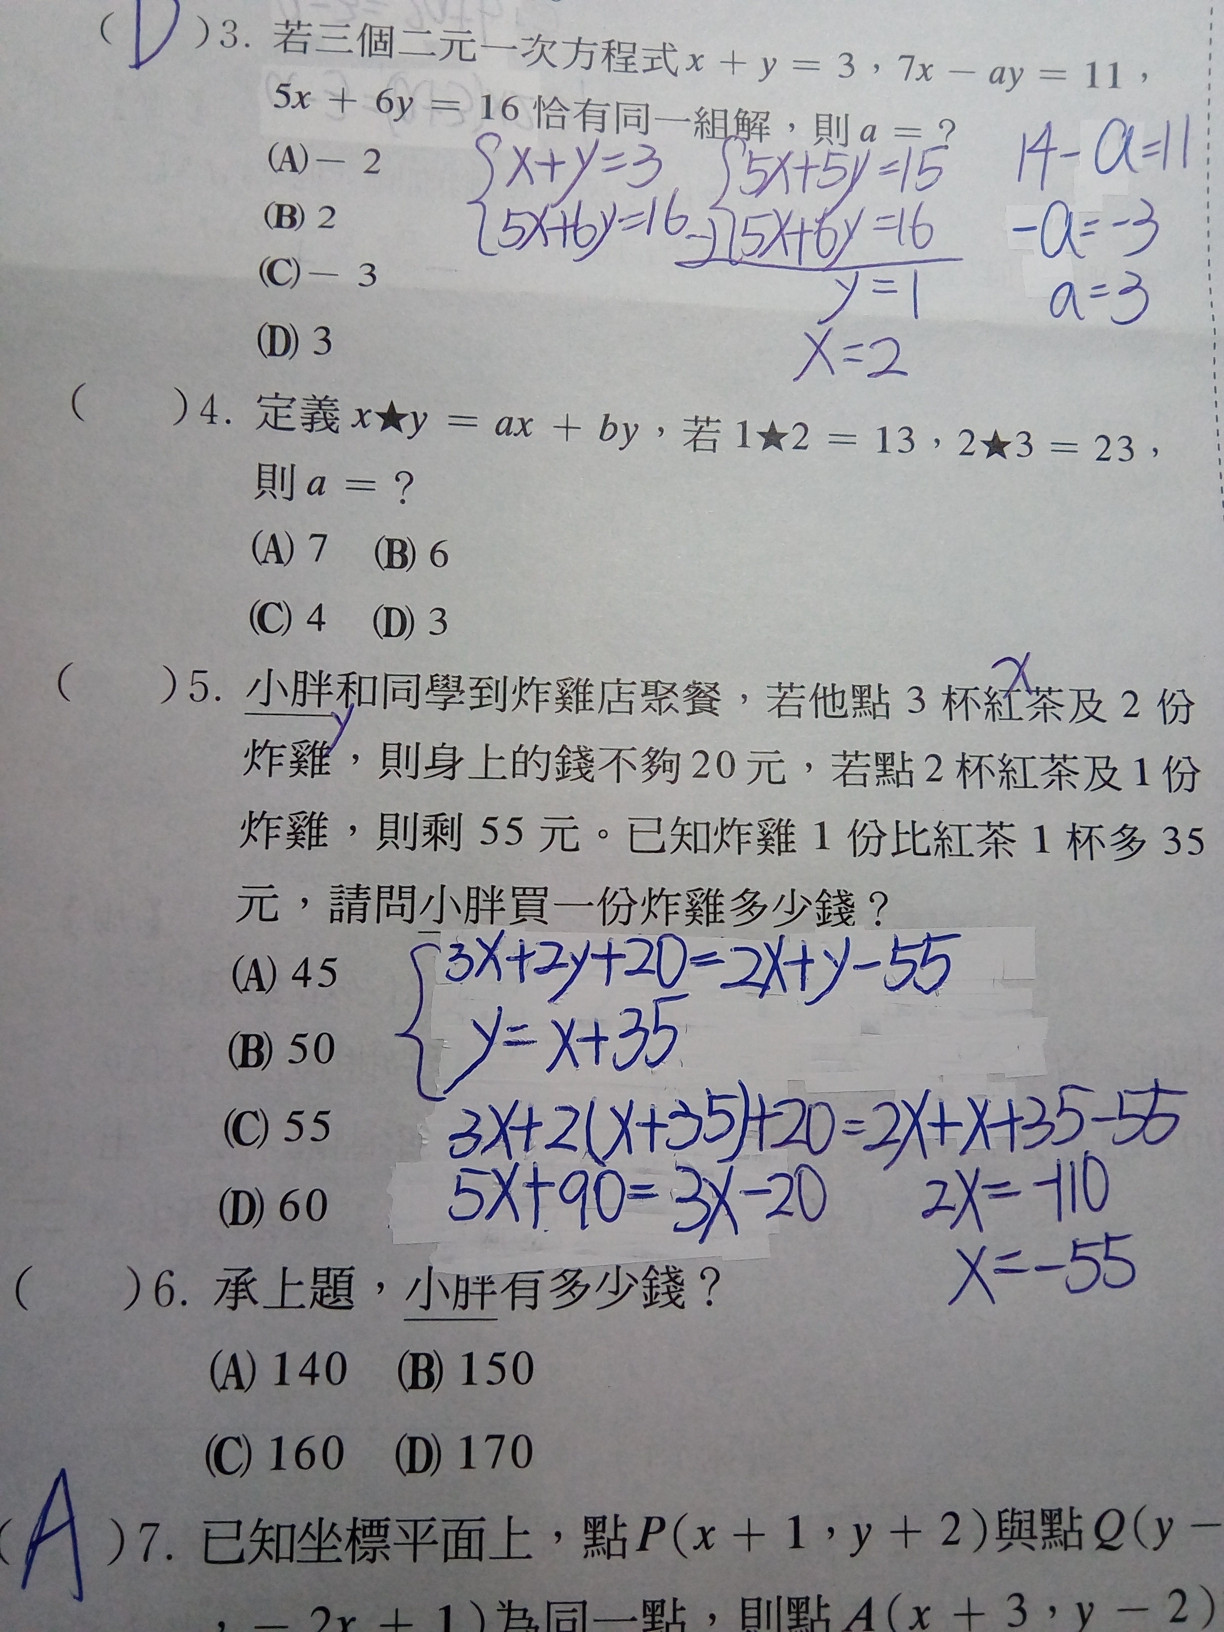 ( D )3. 若三個二元一次方程式 x + y = 3，7x − ay = 11，
5x + 6y = 16 恰有同一組解，則 a = ?
(A) − 2
(B) 2
(C) − 3
(D) 3
{x+y=3
5x+6y=16
-){5x+5y=15
5x+6y=16
y=1
x=2
14-a=11
-a=-3
a=3
(   )4. 定義 x★y = ax + by，若 1★2 = 13，2★3 = 23，
則 a = ?
(A) 7 (B) 6
(C) 4 (D) 3
x
(   )5. 小胖和同學到炸雞店聚餐，若他點 3 杯紅茶及 2 份
y
炸雞，則身上的錢不夠 20 元，若點 2 杯紅茶及 1 份
炸雞，則剩 55 元。已知炸雞 1 份比紅茶 1 杯多 35
元，請問小胖買一份炸雞多少錢？
(A) 45
(B) 50
(C) 55
(D) 60
{3x+2y+20=2x+y-55
y=x+35
3x+2(x+35)+20=2x+x+35-55
5x+90=3x-20 2x=-110
x=-55
(   )6. 承上題，小胖有多少錢？
(A) 140 (B) 150
(C) 160 (D) 170
( A )7. 已知坐標平面上，點 P(x + 1，y + 2)與點 Q(y −
，− 2x + 1)為同一點，則點 A(x + 3，y − 2)